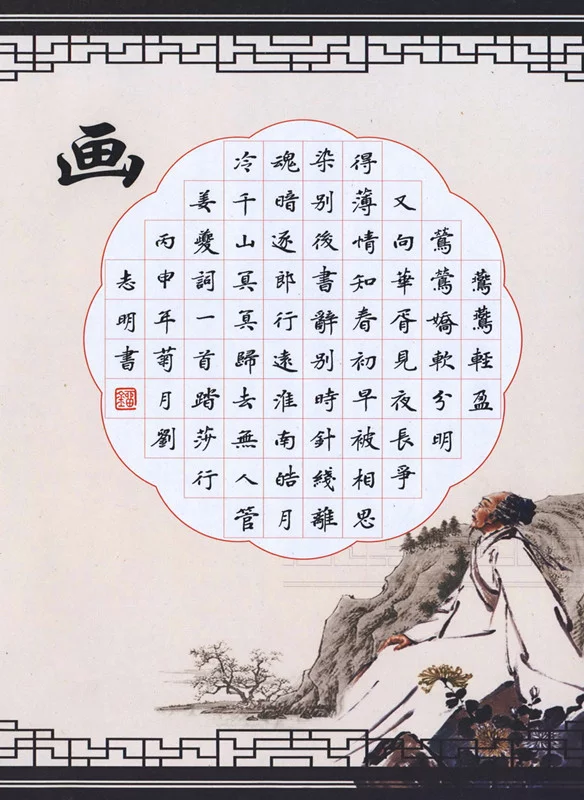 画
鷰鷰輕盈
鶯鶯嬌軟分明
又向華胥見夜長爭
得薄情知春初早被相思
染別後書辭別時針綫離
魂暗逐郎行遠淮南皓月
冷千山冥冥歸去無人管
姜夔詞一首踏莎行
丙申年菊月劉
志明書